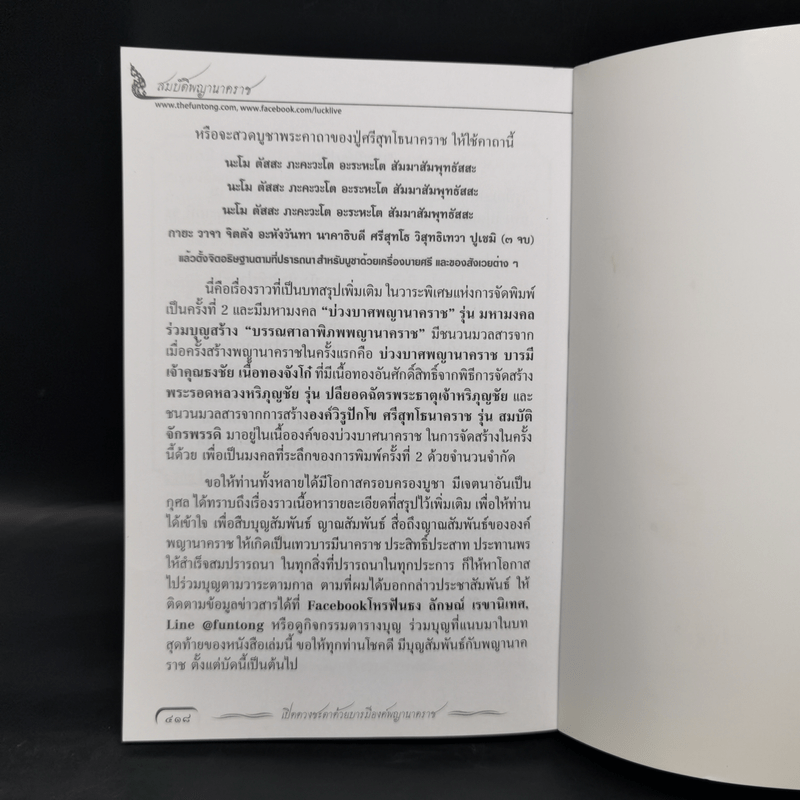 สมบัติพญานาคราช
www.thefuntong.com, www.facebook.com/lucklive
หรือจะสวดบูชาพระคาถาของปู่ศรีสุทโธนาคราช ให้ใช้คาถานี้
นะโม ตัสสะ ภะคะวะโต อะระหะโต สัมมาสัมพุทธัสสะ
นะโม ตัสสะ ภะคะวะโต อะระหะโต สัมมาสัมพุทธัสสะ
นะโม ตัสสะ ภะคะวะโต อะระหะโต สัมมาสัมพุทธัสสะ
กายะ วาจา จิตตัง อะหังวันทา นาคาธิบดี ศรีสุทโธ วิสุทธิเทวา ปูเชมิ (๓ จบ)
แล้วตั้งจิตอธิษฐานตามที่ปรารถนา สำหรับบูชาด้วยเครื่องบายศรี และของสังเวยต่าง ๆ
นี่คือเรื่องราวที่เป็นบทสรุปเพิ่มเติม ในวาระพิเศษแห่งการจัดพิมพ์
เป็นครั้งที่ 2 และมีมหามงคล “บ่วงบาศพญานาคราช” รุ่น มหามงคล
ร่วมบุญสร้าง “บรรณศาลาพิภพพญานาคราช” มีชนวนมวลสารจาก
เมื่อครั้งสร้างพญานาคราชในครั้งแรกคือ บ่วงบาศพญานาคราช บารมี
เจ้าคุณธงชัย เนื้อทองจังโก๋ ที่มีเนื้อทองอันศักดิ์สิทธิ์จากพิธีการจัดสร้าง
พระรอดหลวงหริภุญชัย รุ่น ปลียอดฉัตรพระธาตุเจ้าหริภุญชัย และ
ชนวนมวลสารจากการสร้างองค์วิรูปักโข ศรีสุทโธนาคราช รุ่น สมบัติ
จักรพรรดิ มาอยู่ในเนื้อองค์ของบ่วงบาศนาคราช ในการจัดสร้างในครั้ง
นี้ด้วย เพื่อเป็นมงคลที่ระลึกของการพิมพ์ครั้งที่ 2 ด้วยจำนวนจำกัด
ขอให้ท่านทั้งหลายได้มีโอกาสครอบครองบูชา มีเจตนาอันเป็น
กุศล ได้ทราบถึงเรื่องราวเนื้อหารายละเอียดที่สรุปไว้เพิ่มเติม เพื่อให้ท่าน
ได้เข้าใจ เพื่อสืบบุญสัมพันธ์ ญาณสัมพันธ์ สื่อถึงญาณสัมพันธ์ขององค์
พญานาคราช ให้เกิดเป็นเทวบารมีนาคราช ประสิทธิ์ประสาท ประทานพร
ให้สำเร็จสมปรารถนา ในทุกสิ่งที่ปรารถนาในทุกประการ ก็ให้หาโอกาส
ไปร่วมบุญตามวาระตามกาล ตามที่ผมได้บอกกล่าวประชาสัมพันธ์ ให้
ติดตามข้อมูลข่าวสารได้ที่ Facebookโหรฟันธง ลักษณ์ เรขานิเทศ,
Line @funtong หรือดูกิจกรรมตารางบุญ ร่วมบุญที่แนบมาในบท
สุดท้ายของหนังสือเล่มนี้ ขอให้ทุกท่านโชคดี มีบุญสัมพันธ์กับพญานาค
ราช ตั้งแต่บัดนี้เป็นต้นไป
๔๑๘
เปิดดวงชะตาด้วยบารมีองค์พญานาคราช